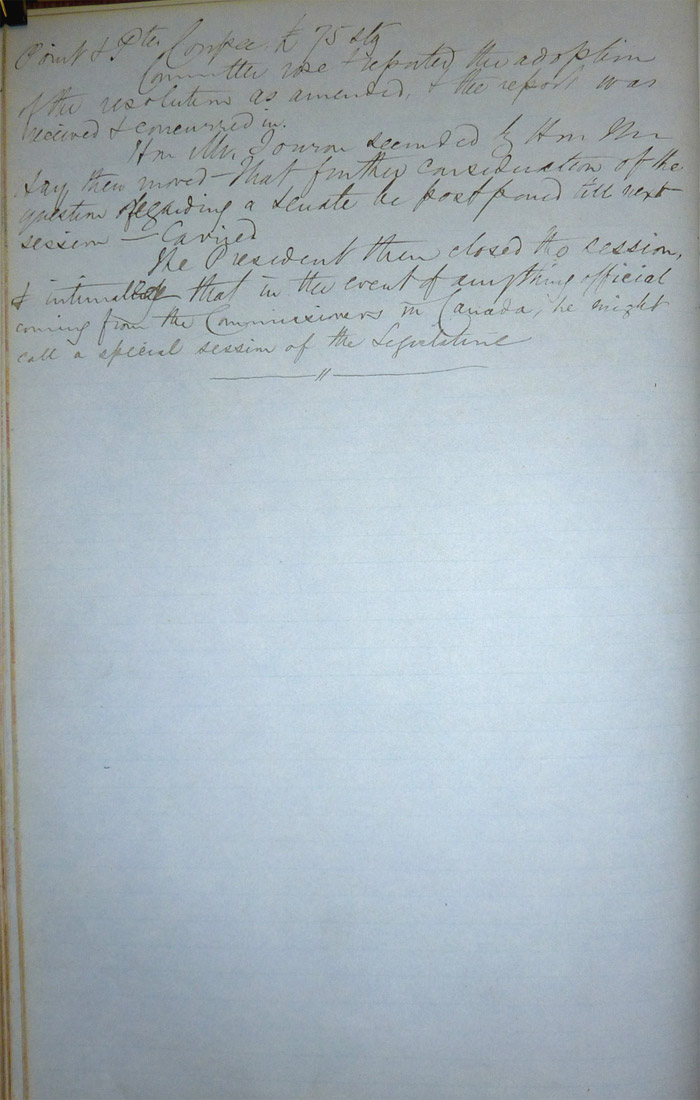 Point & Pte Coupee £ 75 stg
Committee rose & reported the adoption
of the resolution as amended, & the report was
received & concurred in.
Hon Mr. seconded by Hon Mr
Lay then moved – That further consideration of the
question regarding a Senate be postponed till next
session – Carried
The President then closed the session,
& that in the event of anything official
coming from the Commissioners in Canada, he might
call a special session of the Legislature